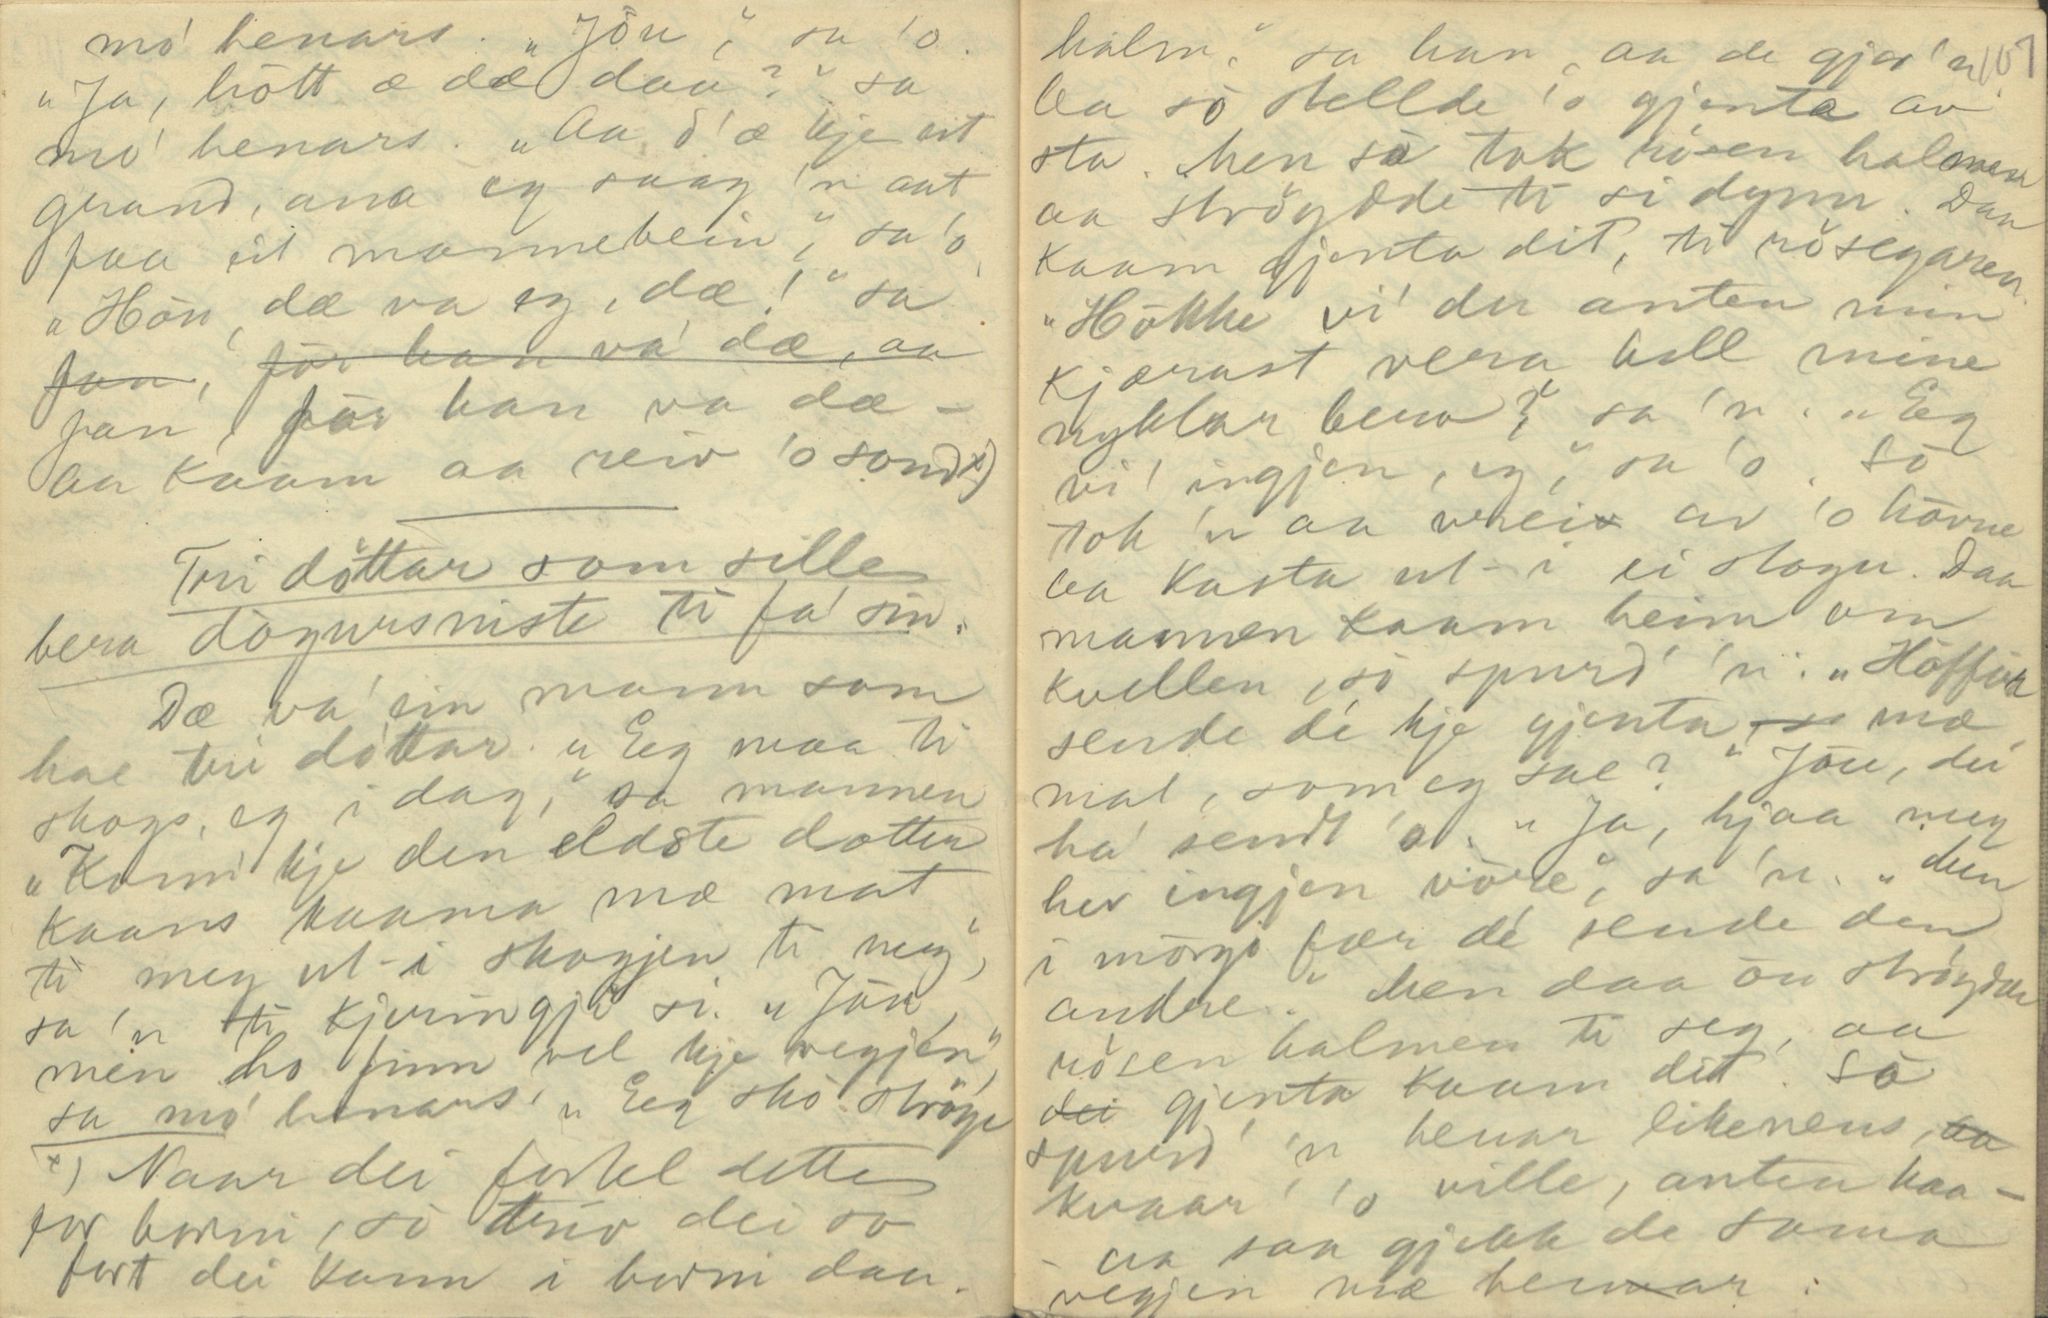 mó henars. „Jöu," sa 'o.
„Ja, hött æ dæ daa?" sa
mó henars. „Aa d'æ kje eit
grand, ana eg saag 'n aat
paa eit mannebein," sa 'o.
„Höu, dæ va eg, dæ!" sa
fan, för han va' dæ, aa
fan, för han va dæ –
aa kaam aa reiv 'o sond x)
Tri döttar som sille
bera dögursniste ti fa' sin.
Dæ va' ein mann som
hae tri döttar. „Eg maa ti
skogs, eg i dag," sa mannen
„Kann kje den eldste dotter
kaans kaama mæ mat
ti meg ut-i skogjen ti meg,"
sa 'n ti kjeringji si. „Jöu,
men ho finn vel kje vegjen,"
sa mó henars. „Eeg skò ströye
x) Naar dei fortel dette
for borni, so triv dei so
fort dei kann i borni daa.
halm," sa han, aa de gjor 'n. 107
Aa sò stellde 'o gjenta av
sta. Men sò tok rösen halmen
aa ströydde ti si dynn. Daa
kaam gjenta dit, ti rösegaren.
„Hökke vi' du anten min
kjærast vera hell mine
nyklar bera?" sa 'n. „Eeg
vi' ingjen, eg," sa 'o. Sò
tok 'n aa vrei av 'o hövue
aa kasta ut-i ei stogu. Daa
mannen kaam heim om
kvellen, sò spurd' 'n: „Höfför
sende dé kje gjenta mæ
mat, som eg sae?" „Jöu, dei
ha' sendt 'o. „Ja, hjaa meg
hev ingjen vöre", sa 'n. „Men
i mörgo fær dé sende den
andre." Men daa öu ströydde
rösen halmen ti seg, aa
dei gjenta kaam dit. Sò
spurd' 'n henar likeneus, aa
kvaar' 'o ville, anten kaa –
– aa saa gjekk de sama
vegjen mæ henar: